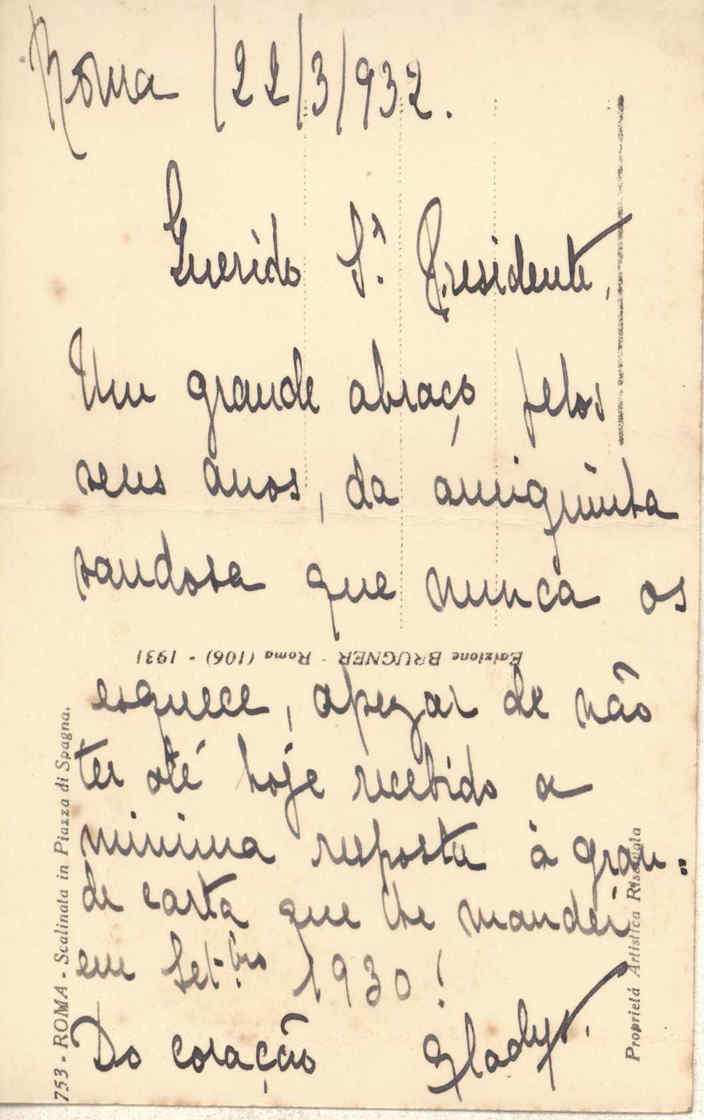 Roma /22/3/932.
Querido Sr. Presidente,
Um grande abraço pelos
seus anos, da amiguinha
saudosa que nunca os
esquece, apezar de não
ter até hoje recebido a
minima resposta à gran=
de carta que lhe mandei
em Set-bro 1930!
Do coração Gladys.
Edizione BRUGNER - Roma (106) - 1931
753 - ROMA - Scalinata in Piazza di Spagna.
Proprietá Artistica Riservata